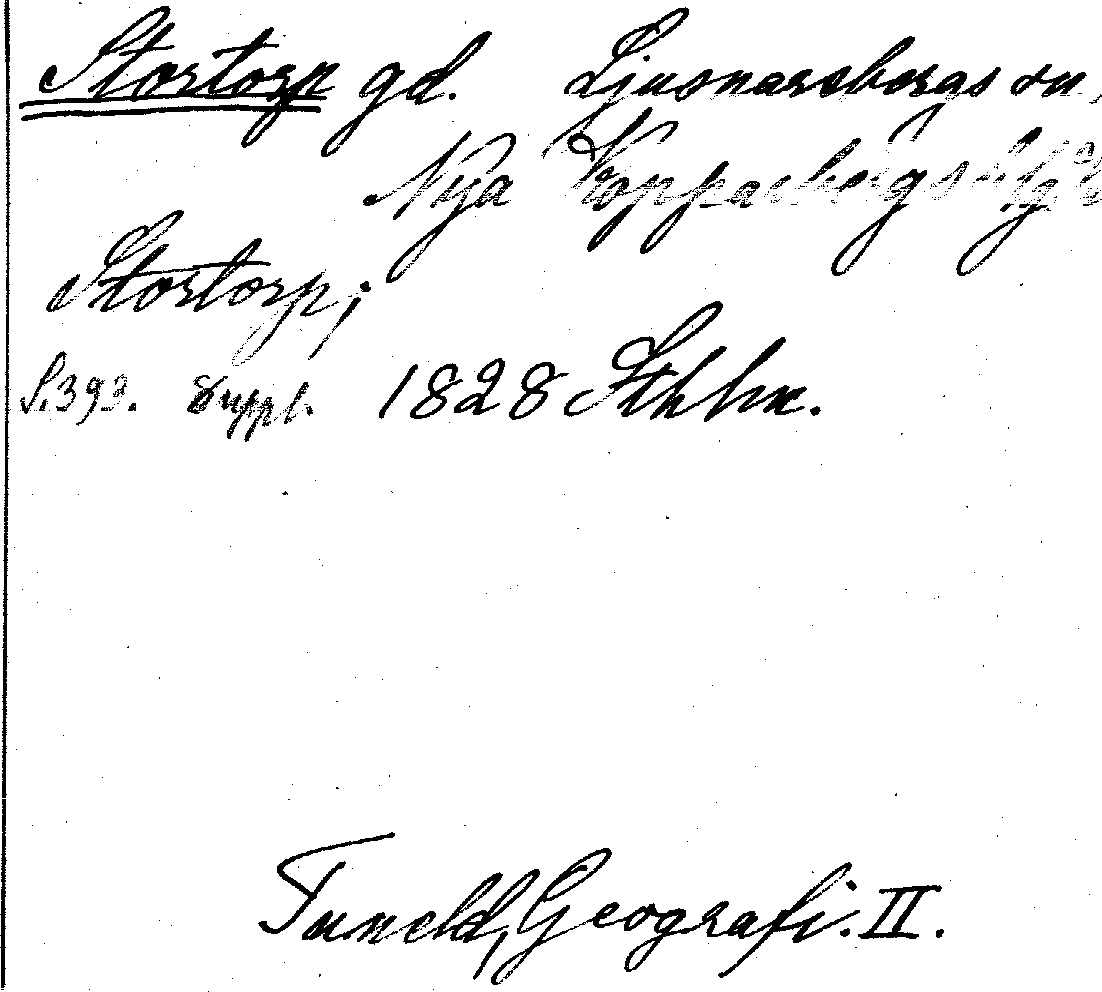 Stortorp gd. Ljusnarsbergs sn,
Nya Kopparbergs
Stortorp;
S.393. Suppl. 1828 Sthlm.
Tuneld, Geografi. II.